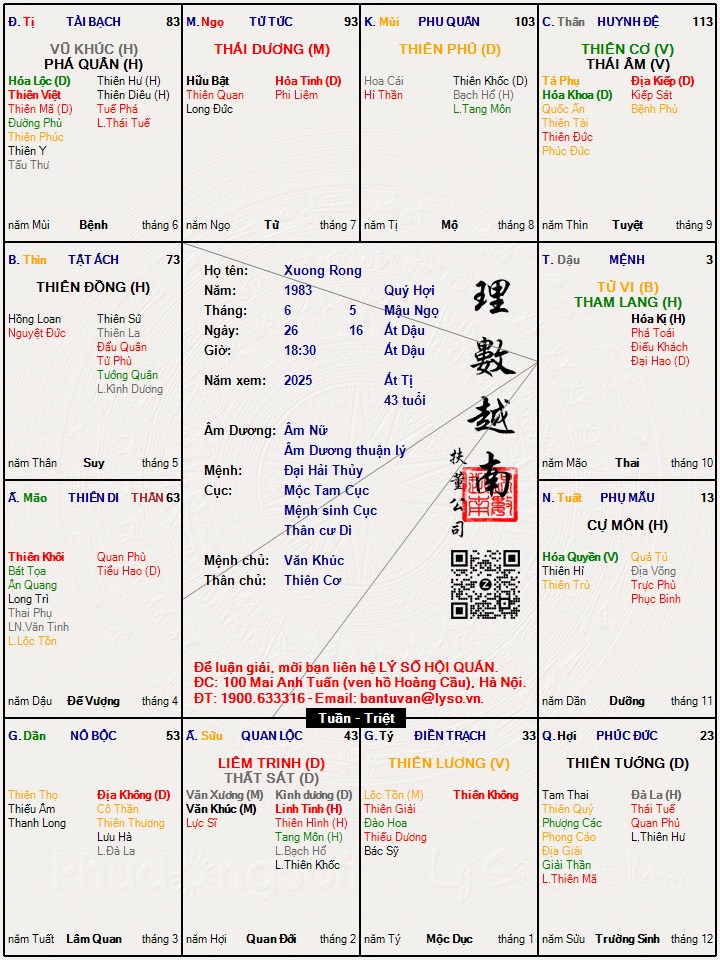 Đ. Tị TÀI BẠCH 83
VŨ KHÚC (H)
PHÁ QUÂN (H)
Hóa Lộc (D) Thiên Hư (H)
Thiên Việt Thiên Diêu (H)
Thiên Mã (D) Tuế Phá
Đường Phù L.Thái Tuế
Thiên Phúc
Thiên Y
Tấu Thư
năm Mùi Bệnh tháng 6
M. Ngọ TỬ TỨC 93
THÁI DƯƠNG (M)
Hữu Bật Hỏa Tinh (D)
Thiên Quan Phi Liêm
Long Đức
năm Ngọ Tử tháng 7
K. Mùi PHU QUÂN 103
THIÊN PHỦ (D)
Hoa Cái Thiên Khốc (D)
Hỉ Thần Bạch Hổ (H)
L.Tang Môn
năm Tị Mộ tháng 8
C. Thân HUYNH ĐỆ 113
THIÊN CƠ (V)
THÁI ÂM (V)
Tả Phụ Địa Kiếp (D)
Hóa Khoa (D) Kiếp Sát
Quốc Ấn Bệnh Phù
Thiên Tài
Thiên Đức
Phúc Đức
năm Thìn Tuyệt tháng 9
B. Thìn TẬT ÁCH 73
THIÊN ĐỒNG (H)
Hồng Loan Thiên Sứ
Nguyệt Đức Thiên La
Đẩu Quân
Tử Phù
Tướng Quân
L.Kình Dương
năm Thân Suy tháng 5
Họ tên: Xuong Rong
Năm: 1983 Quý Hợi
Tháng: 6 5 Mậu Ngọ
Ngày: 26 16 Ất Dậu
Giờ: 18:30 Ất Dậu
Năm xem: 2025 Ất Tị
43 tuổi
Âm Dương: Âm Nữ
Âm Dương thuận lý
Mệnh: Đại Hải Thủy
Cục: Mộc Tam Cục
Mệnh sinh Cục
Thân cư Di
Mệnh chủ: Văn Khúc
Thân chủ: Thiên Cơ
理數越南
扶董公司
Để luận giải, mời bạn liên hệ LÝ SỐ HỘI QUÁN.
ĐC: 100 Mai Anh Tuấn (ven hồ Hoàng Cầu), Hà Nội.
ĐT: 1900.633316 - Email: bantuvan@lyso.vn.
Tuần - Triệt
T. Dậu MỆNH 3
TỬ VI (B)
THAM LANG (H)
Hóa Kị (H)
Phá Toái
Điếu Khách
Đại Hao (D)
năm Mão Thai tháng 10
Ấ. Mão THIÊN DI THÂN 63
Thiên Khôi Quan Phù
Bát Tọa Tiểu Hao (D)
Ân Quang
Long Trì
Thai Phụ
LN.Văn Tinh
L.Lộc Tồn
năm Dậu Đế Vượng tháng 4
N. Tuất PHỤ MẪU 13
CỰ MÔN (H)
Hóa Quyền (V) Quả Tú
Thiên Hỉ Địa Võng
Thiên Trù Trực Phù
Phục Binh
năm Dần Dưỡng tháng 11
G. Dần NÔ BỘC 53
Thiên Thọ Địa Không (D)
Thiếu Âm Cô Thần
Thanh Long Thiên Thương
Lưu Hà
L.Đà La
năm Tuất Lâm Quan tháng 3
Ấ. Sửu QUAN LỘC 43
LIÊM TRINH (D)
THẤT SÁT (D)
Văn Xương (M) Kình dương (D)
Văn Khúc (M) Linh Tinh (H)
Lực Sĩ Thiên Hình (H)
Tang Môn (H)
L.Bạch Hổ
L.Thiên Khốc
năm Hợi Quan Đới tháng 2
G. Tý ĐIỀN TRẠCH 33
THIÊN LƯƠNG (V)
Lộc Tồn (M) Thiên Không
Thiên Giải
Đào Hoa
Thiếu Dương
Bác Sỹ
năm Tý Mộc Dục tháng 1
Q. Hợi PHÚC ĐỨC 23
THIÊN TƯỚNG (D)
Tam Thai Đà La (H)
Thiên Quý Thái Tuế
Phượng Các Quan Phủ
Phong Cáo L.Thiên Hư
Địa Giải
Giải Thần
L.Thiên Mã
năm Sửu Trường Sinh tháng 12